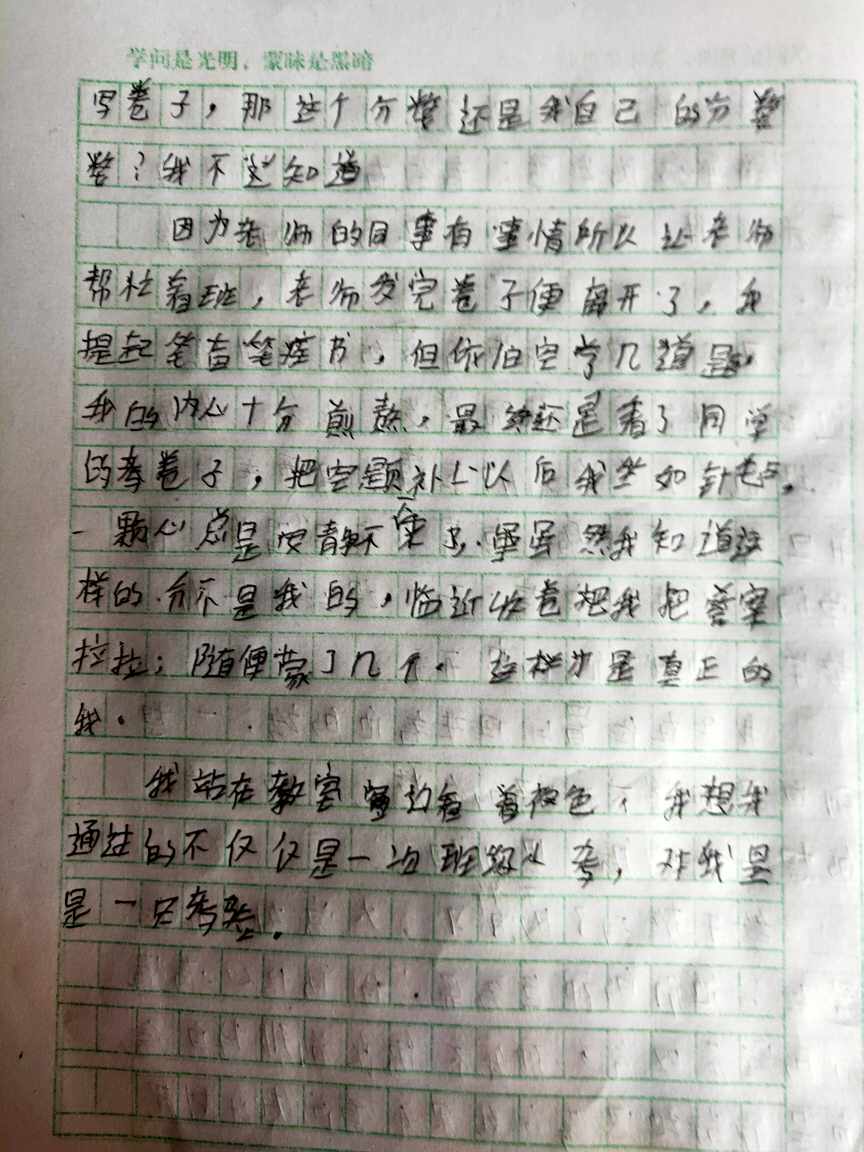 学问是光明，蒙昧是黑暗
写卷子，那这个分数还是我自己的分数
数？我不这知道
因为老师的同事有事情所以让老师
帮忙着班，老师发完卷子便离开了，我
提起笔奋笔疾书，但依旧空了几道题，
我的内心十分煎熬，最终还是看了同学
的考卷子，把空题补上以后我坐如针毡，
一颗心总是安静不下来，虽然我知道这
样的分不是我的，临近收卷我把答案
拉拉；随便蒙了几个。这样才是真正的
我。
我站在教室窗边看着夜色，我想我
通过的不仅仅是一次班级小考，对我
是一次考验。